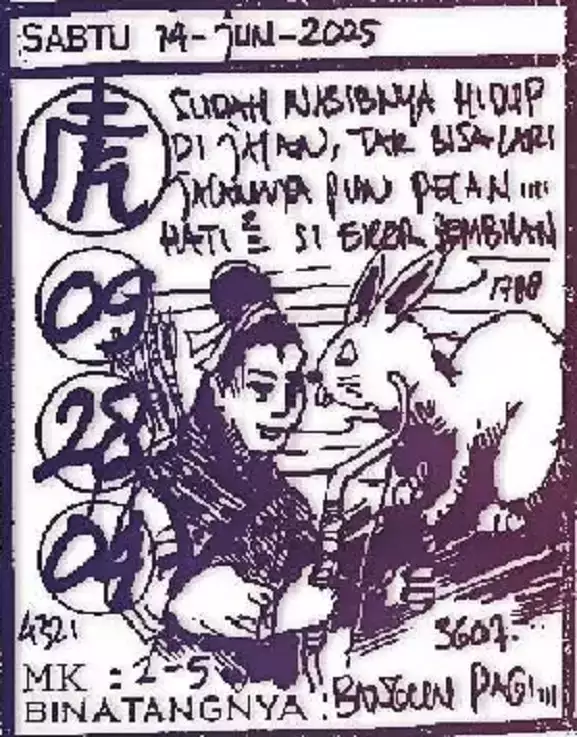 SABTU 14-JUN-2025
虎
SUDAH NASIBNYA HIDUP
DI JAHAN, TAK BISA LARI
PUN PELAN ....
HATI² SI EKOR SEMBILAN
1788
09
28
04
4321
3607.
MK : 2-5
BINATANGNYA : BANGUN PAGI...